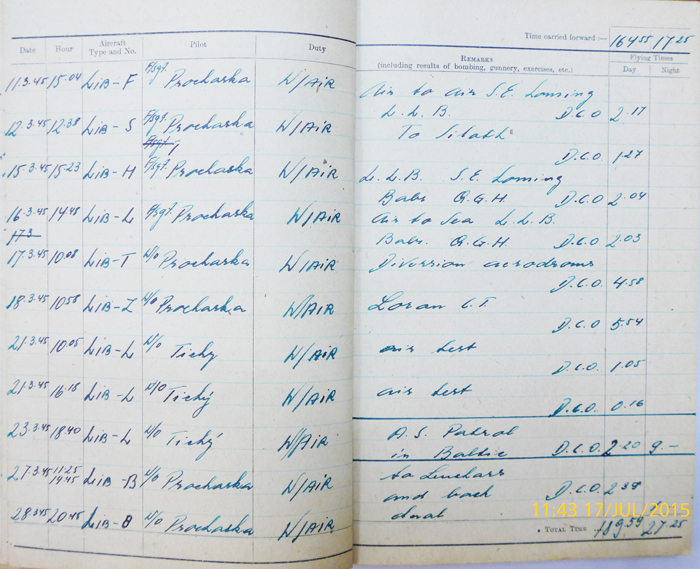 Time carried forward :— 164 55 17 25
Date Hour Aircraft Type and No. Pilot Duty REMARKS (including results of bombing, gunnery, exercises, etc.) Flying Times Day Night
11.3.45 15.04 LiB-F F/sgt. Prochaska W/AiR Air to air S.E. Homing
L.L.B. D.C.O 2.17
12.3.45 12.38 LiB-S F/sgt. Prochaska W/AiR To Silath
D.C.O. 1.27
15.3.45 15.23 LiB-H F/sgt. Prochaska W/AiR L.L.B. S.E. Homing
Babs Q.G.H. D.C.O 2.04
16.3.45 14.48 LiB-L F/sgt. Prochaska W/AiR Air to Sea L.L.B.
173
Babs. Q.G.H. D.C.O 2.03
17.3.45 10.08 LiB-T W/O Prochaska W/AiR Diversion aerodroms
D.C.O. 4.58
18.3.45 10.58 LiB-Z W/O Prochaska W/AiR Loran C.T.
D.C.O 5.54
21.3.45 10.05 LiB-L W/O Tichy W/AiR air test
D.C.O. 1.05
21.3.45 16.15 LiB-L W/O Tichý W/AiR air test
D.C.O. 0.16
23.3.45 18.40 LiB-L W/O Tichý W/AiR A.S. Patrol
in Baltic D.C.O. 2 20 9.—
27.3.45 11.25 19.45 LiB-B W/O Prochaska W/AiR to Leuchars
and back D.C.O. 2.39
28.3.45 20.45 LiB-B W/O Prochaska W/AiR
TOTAL TIME 189 59 27 25
11:43 17/JUL/2015